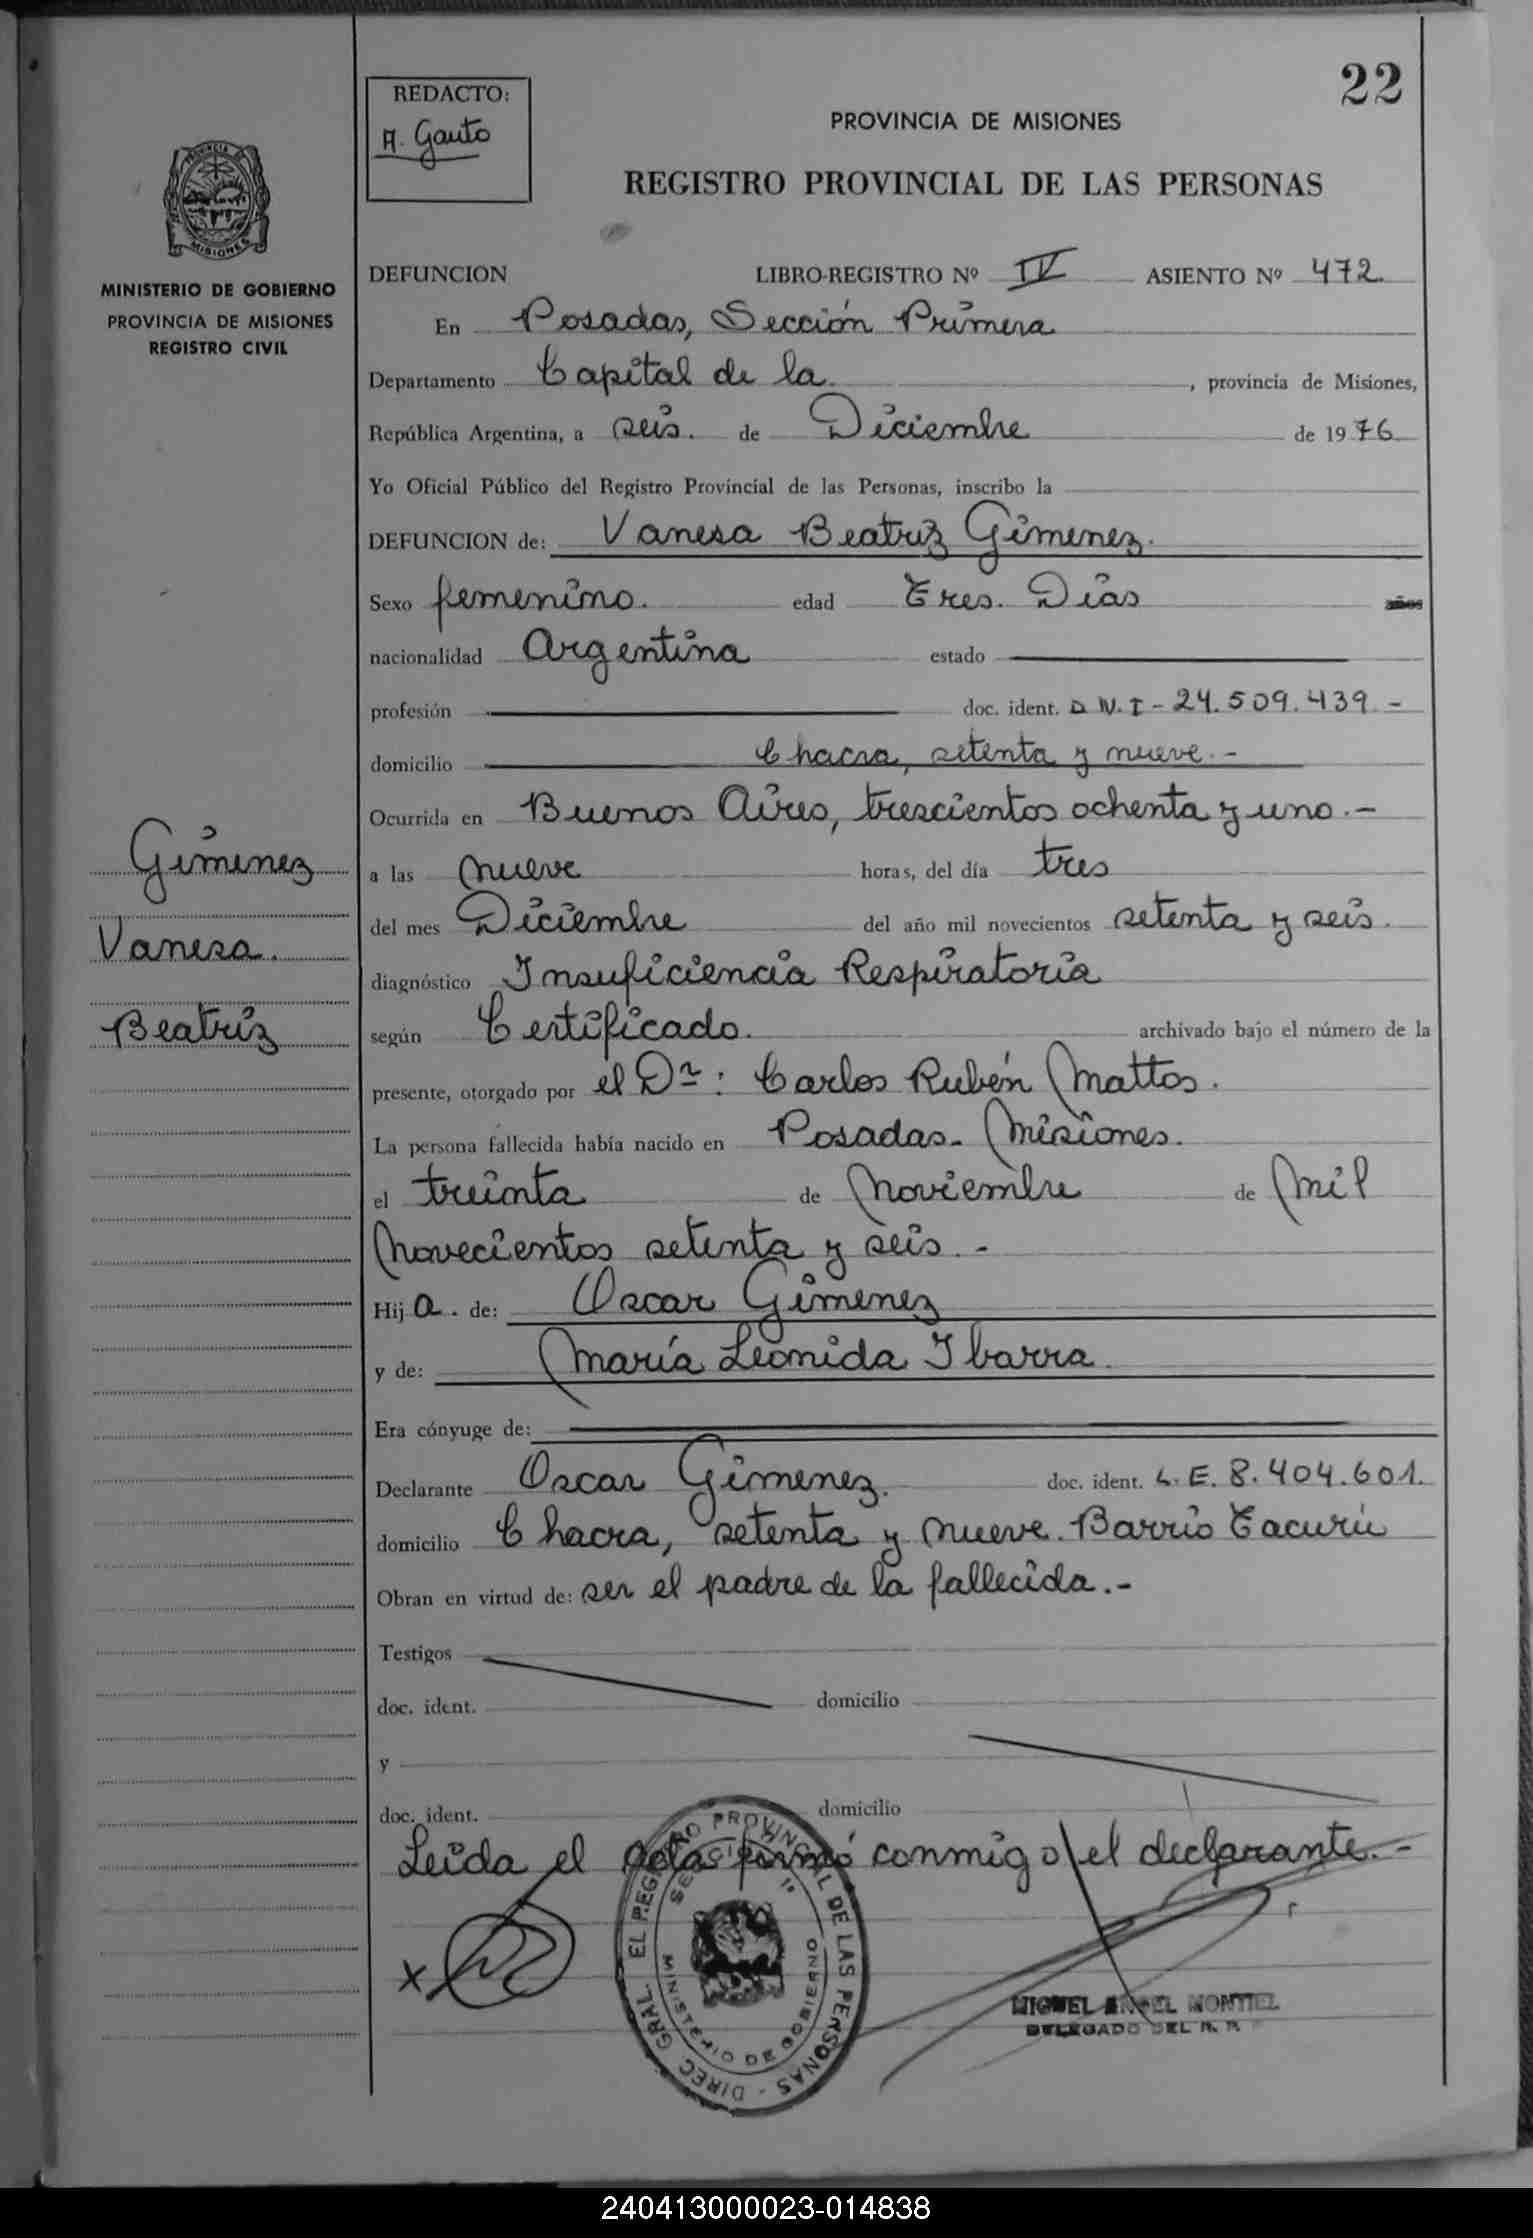 22
REDACTO:
A. Gauto
PROVINCIA DE MISIONES
REGISTRO PROVINCIAL DE LAS PERSONAS
PROVINCIA DE
MISIONES
MINISTERIO DE GOBIERNO
PROVINCIA DE MISIONES
REGISTRO CIVIL
DEFUNCION LIBRO-REGISTRO Nº IV ASIENTO Nº 472
En Posadas, Sección Primera
Departamento Capital de la , provincia de Misiones,
República Argentina, a seis. de Diciembre de 1976
Yo Oficial Público del Registro Provincial de las Personas, inscribo la
DEFUNCION de: Vanesa Beatriz Gimenez.
Sexo femenino. edad Tres. Dias años
nacionalidad Argentina estado
profesión doc. ident. D.N.I - 24.509.439. -
domicilio Chacra, setenta y nueve. -
Ocurrida en Buenos Aires, trescientos ochenta y uno. -
a las nueve horas, del día tres
del mes Diciembre del año mil novecientos setenta y seis.
diagnóstico Insuficiencia Respiratoria
según Certificado. archivado bajo el número de la
presente, otorgado por el Dr: Carlos Rubén Mattos.
La persona fallecida había nacido en Posadas - Misiones.
el treinta de Noviembre de Mil
Novecientos setenta y seis. -
Hij a. de: Oscar Gimenez
y de: María Leonida Ibarra
Era cónyuge de:
Declarante Oscar Gimenez. doc. ident. L.E. 8.404.601.
domicilio Chacra, setenta y nueve. Barrio Tacurú
Obran en virtud de: ser el padre de la fallecida. -
Testigos
doc. ident. domicilio
y
doc. ident. domicilio
Leída el Acta firmó conmigo el declarante. -
Gimenez
Vanesa.
Beatriz
X
DIREC. GRAL. EL REGISTRO PROVINCIAL DE LAS PERSONAS -
SECCION 1ª
MINISTERIO DE GOBIERNO
MIGUEL ANGEL MONTIEL
DELEGADO DEL R. P.
240413000023-014838